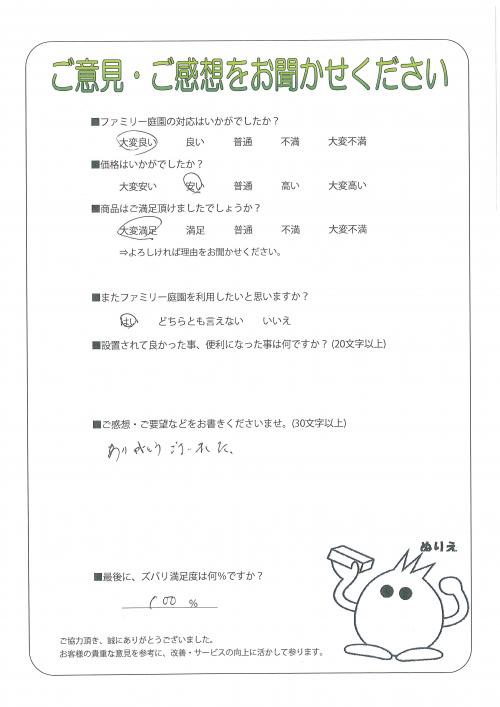 ご意見・ご感想をお聞かせください
■ファミリー庭園の対応はいかがでしたか？
大変良い 良い 普通 不満 大変不満
■価格はいかがでしたか？
大変安い 安い 普通 高い 大変高い
■商品はご満足頂けましたでしょうか？
大変満足 満足 普通 不満 大変不満
⇒よろしければ理由をお聞かせください。
■またファミリー庭園を利用したいと思いますか？
はい どちらとも言えない いいえ
■設置されて良かった事、便利になった事は何ですか？(20文字以上)
■ご感想・ご要望などをお書きくださいませ。(30文字以上)
ありがとう
ぬりえ
■最後に、ズバリ満足度は何％ですか？
100 %
ご協力頂き、誠にありがとうございました。
お客様の貴重な意見を参考に、改善・サービスの向上に活かして参ります。